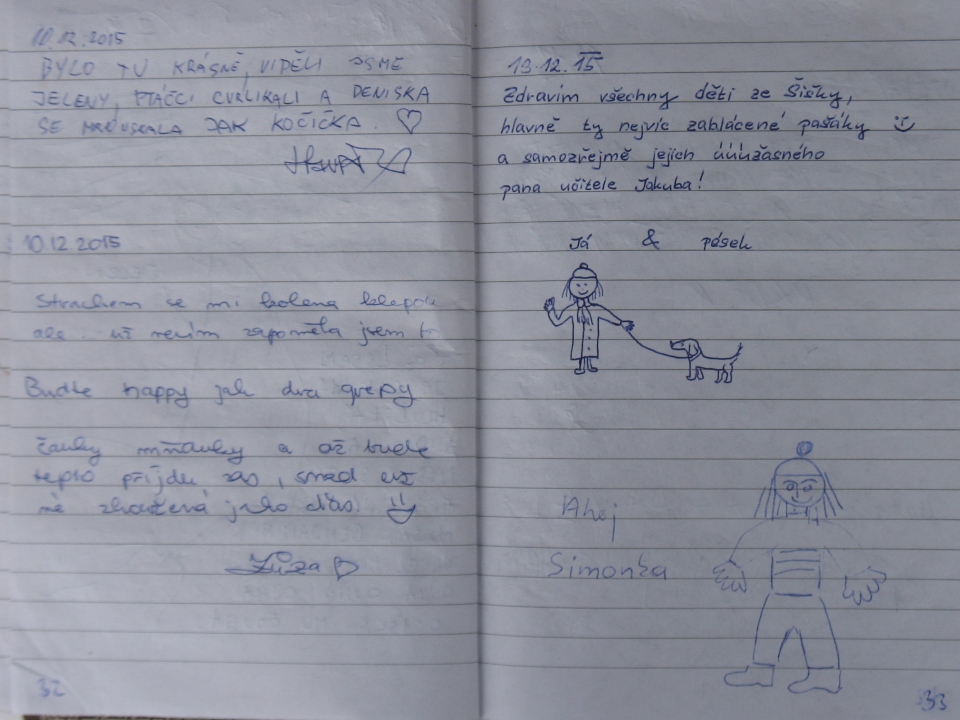 10.12.2015
BYLO TU KRÁSNĚ, VIDĚLI JSME
JELENY, PTÁČCI CVRLIKALI A DENISKA
SE MROUSKALA JAK KOČIČKA. ♡
10.12.2015
Strachem se mi kolena
ale už nevím zapoměla jsem to
Buďte happy jak dva grepy
čauky mňauky a až bude
teplo příjdu zas, snad už
ne zhoušená jako dnes
Zůza ♡
32
13.12.15
Zdravím všechny děti ze Šišky,
hlavně ty nejvíc zablácené pašáky
a samozřejmě jejich úúúžasného
pana učitele Jakuba!
Já & pések
Ahoj
Simonka
33